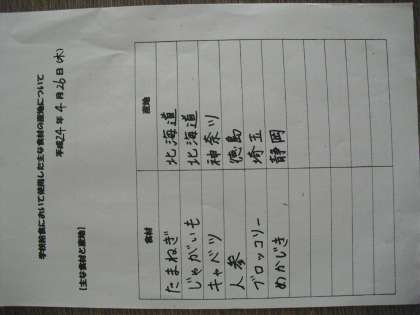 学校給食において使用した主な食材の産地について
平成24年4月26日(木)
【主な食材と産地】
食材 産地
たまねぎ 北海道
じゃがいも 北海道
キャベツ 神奈川
人参 徳島
ブロッコリー 埼玉
めかじき 静岡